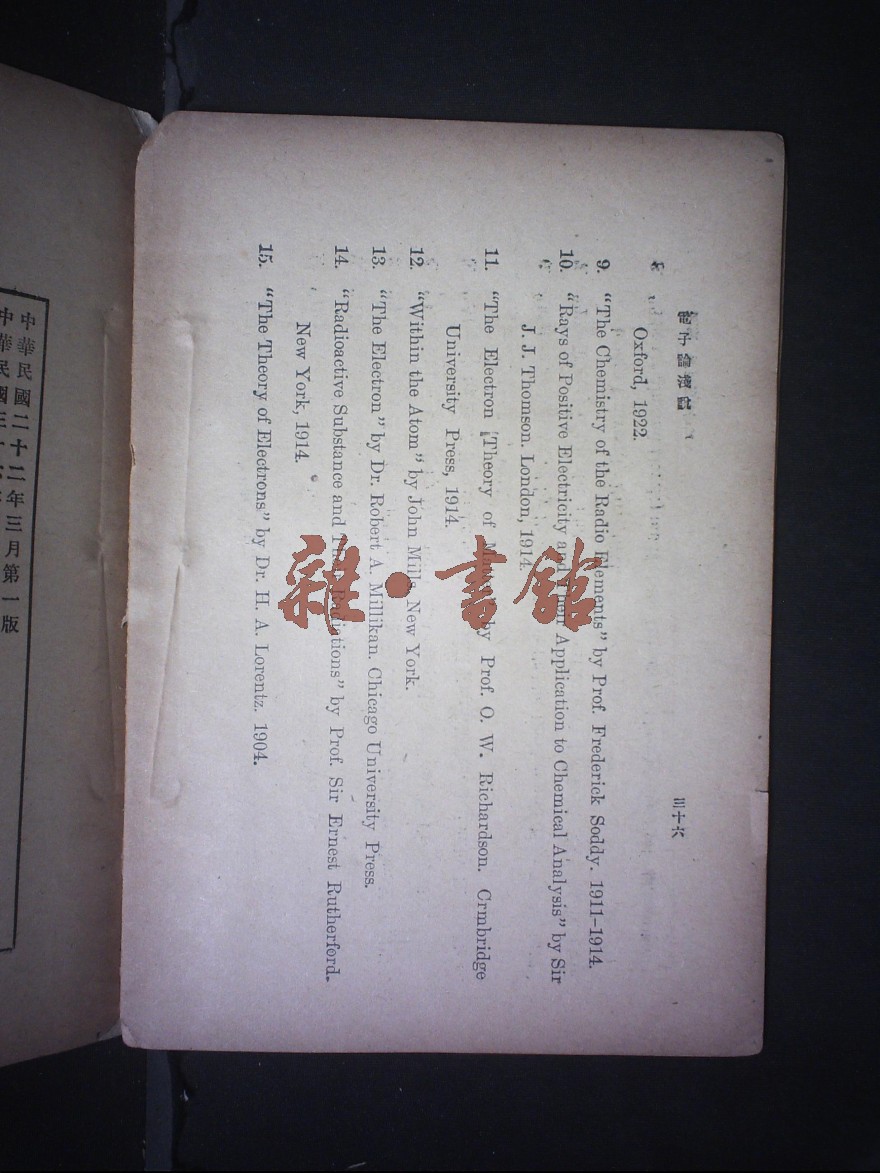 三十六
Oxford, 1922.
9. “The Chemistry of the Radio Elements” by Prof. Frederick Soddy. 1911–1914.
10. “Rays of Positive Electricity and Their Application to Chemical Analysis” by Sir
J. J. Thomson. London, 1914.
11. “The Electron Theory of by Prof. O. W. Richardson. Crmbridge
University Press, 1914.
12. “Within the Atom” by John Mills. New York.
13. “The Electron” by Dr. Robert A. Millikan. Chicago University Press.
14. “Radioactive Substance and Their Radiations” by Prof. Sir Ernest Rutherford.
New York, 1914.
15. “The Theory of Electrons” by Dr. H. A. Lorentz. 1904.
雜·書館
中華民國二十二年三月第一版
中華民國三十